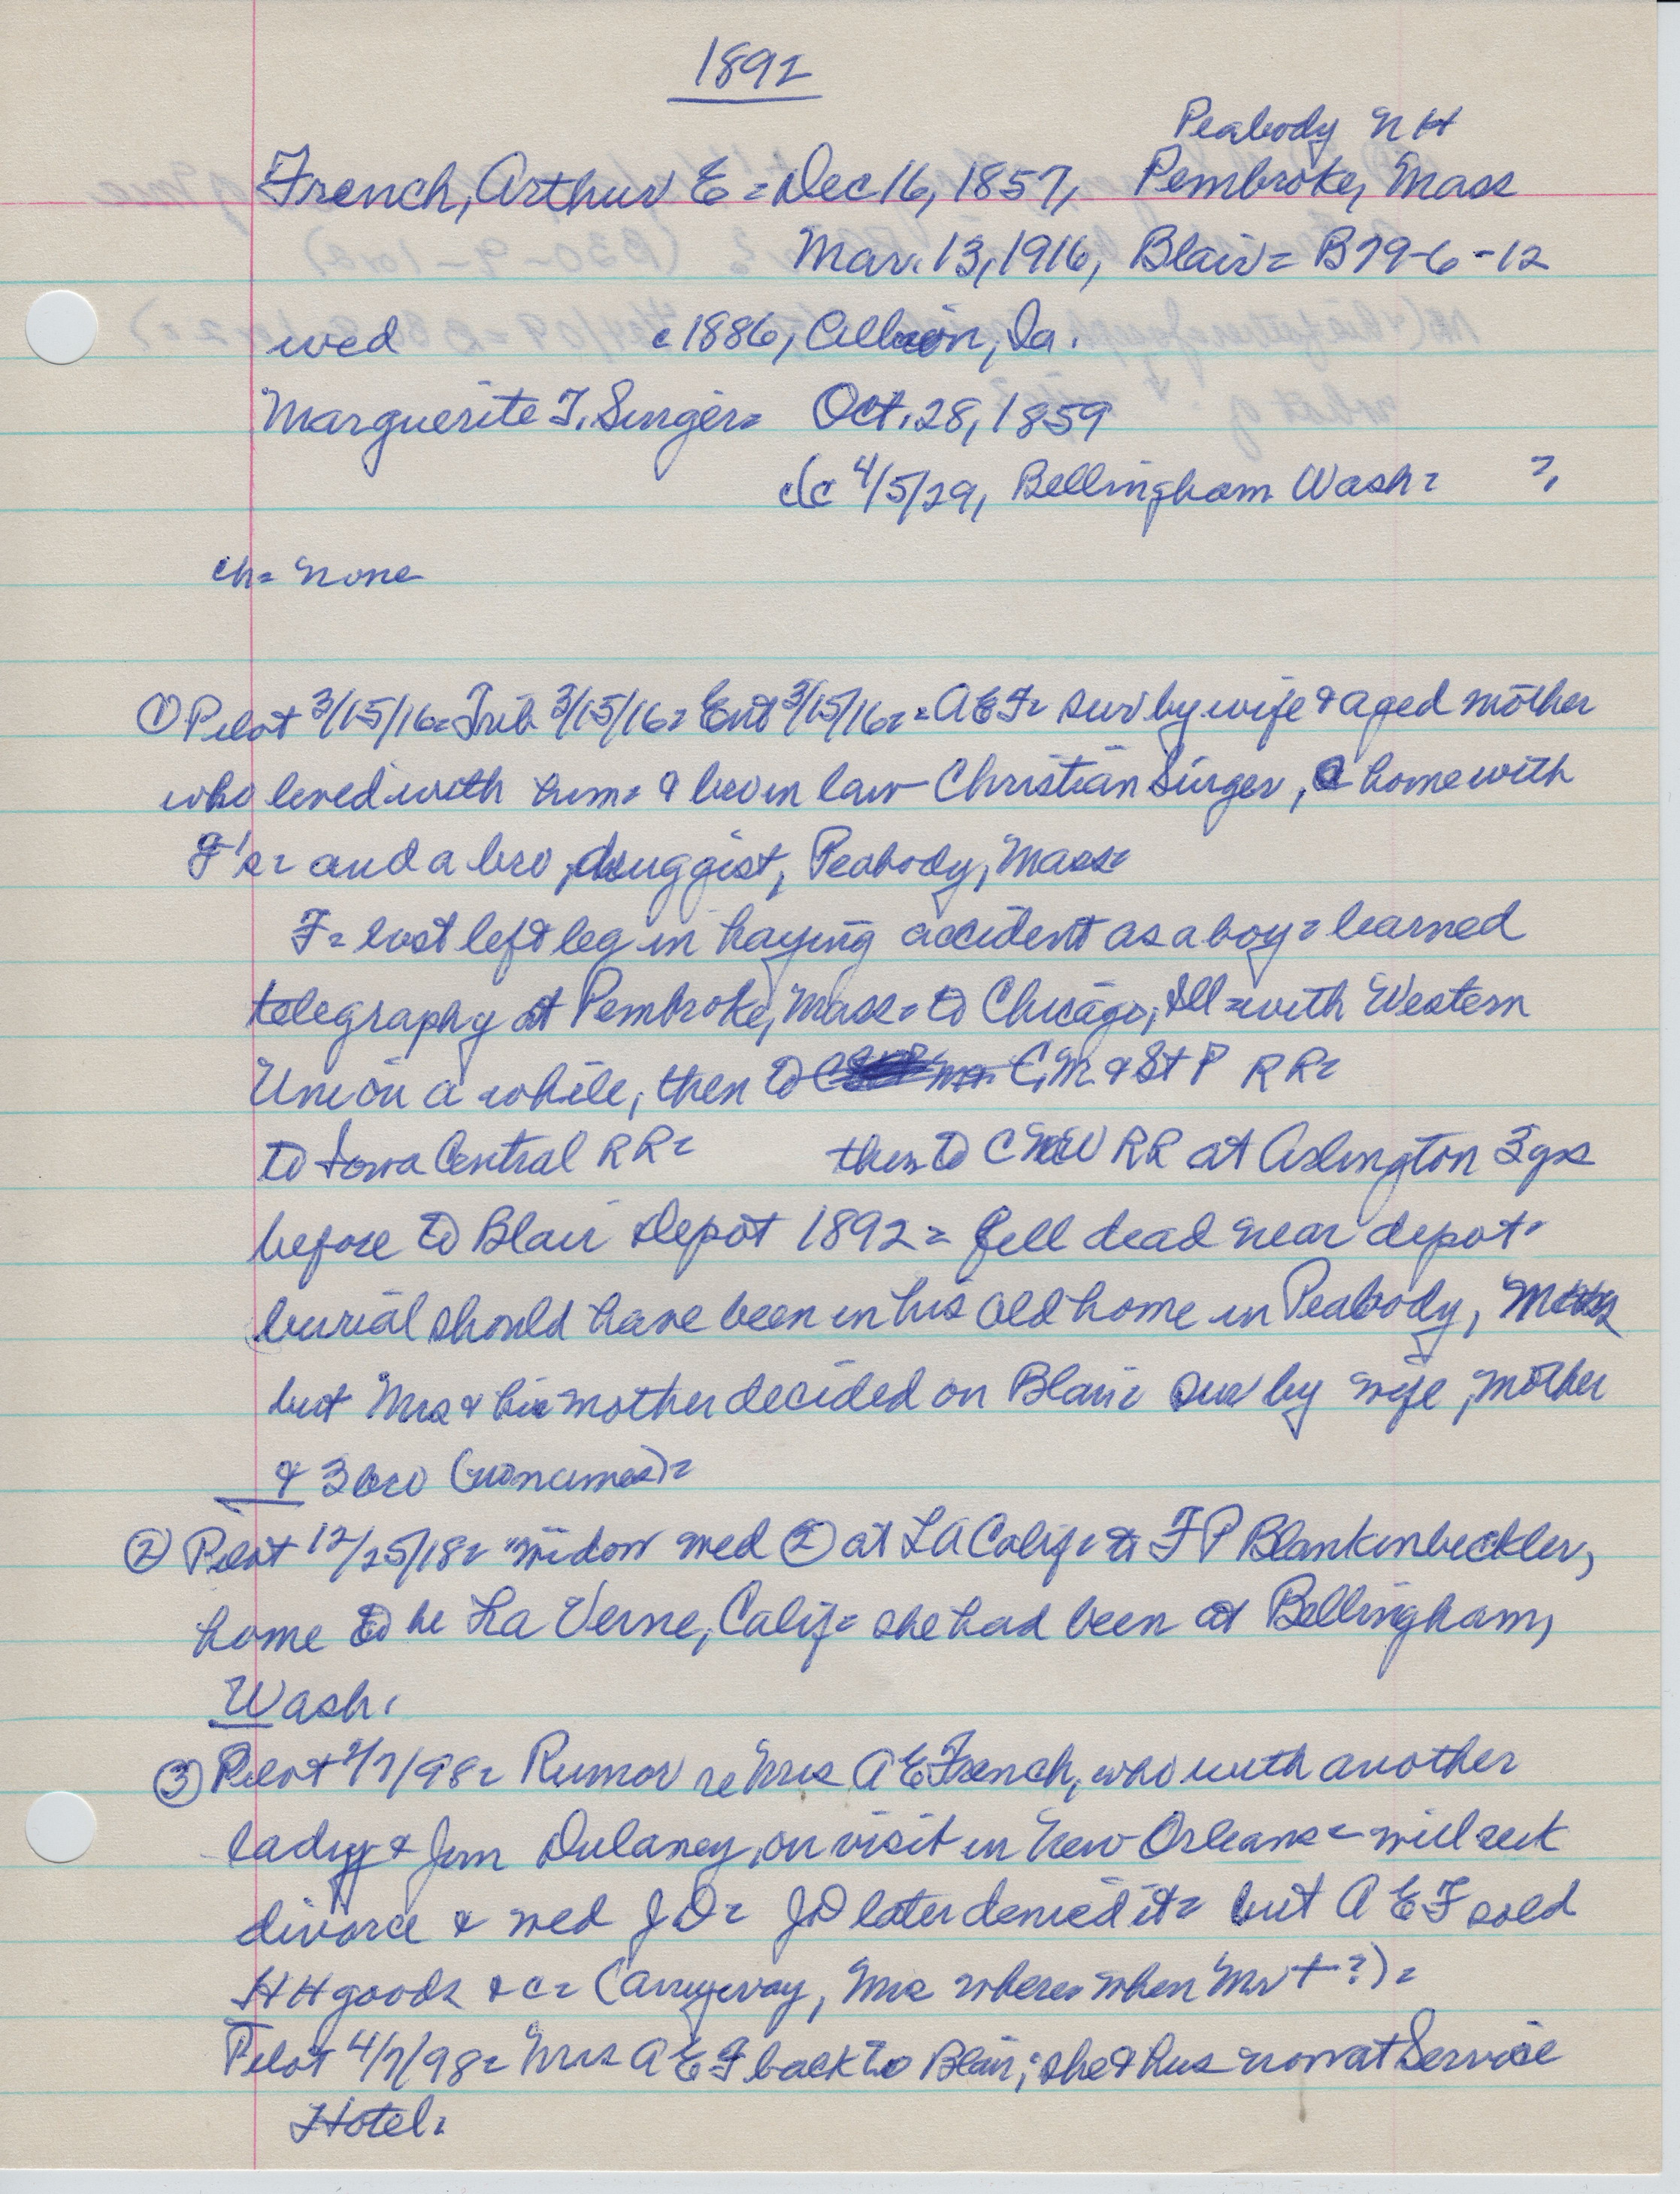 1892
Peabody NH
French, Arthur E = Dec 16, 1857, Pembroke, Mass
Mar. 13, 1916, Blair = B79-6-12
wed c1886, Albion, Ia.
Marguerite T. Singer = Oct. 28, 1859
dc 4/5/29, Bellingham Wash = ?,
ch = none
① Pilot 3/15/16 = Trib 3/15/16 = Ent 3/15/16 = = AEF = surv by wife & aged mother
who lived with him = & bro in law Christian Singer, home with
F's = and a bro, druggist, Peabody, Mass =
F = lost left leg in haying accident as a boy = learned
telegraphy at Pembroke, Mass = to Chicago, Ill = with Western
Union a while, then to C, M & St P RR =
to Iowa Central RR = then to C NW RR at Arlington 3 yrs
before to Blair Depot 1892 = fell dead near depot =
burial should have been in his old home in Peabody, Mass
but Mrs & his mother decided on Blair = surv by wife, mother
& 3 bro (no names) =
② Pilot 12/25/18 = widow wed ② at LA Calif = to F P Blankenbeckler,
home to be La Verne, Calif = she had been at Bellingham,
Wash.
③ Pilot 2/7/98 = Rumor re Mrs A E French, who with another
lady & Jim Dulaney, on visit in New Orleans = will seek
divorce & wed JD = JD later denied it = but A E F sold
HH goods & c = (anyway, Mrs where = when Mr + ?) =
Pilot 4/7/98 = Mrs A E F back to Blair; she & hus now at Service
Hotel =